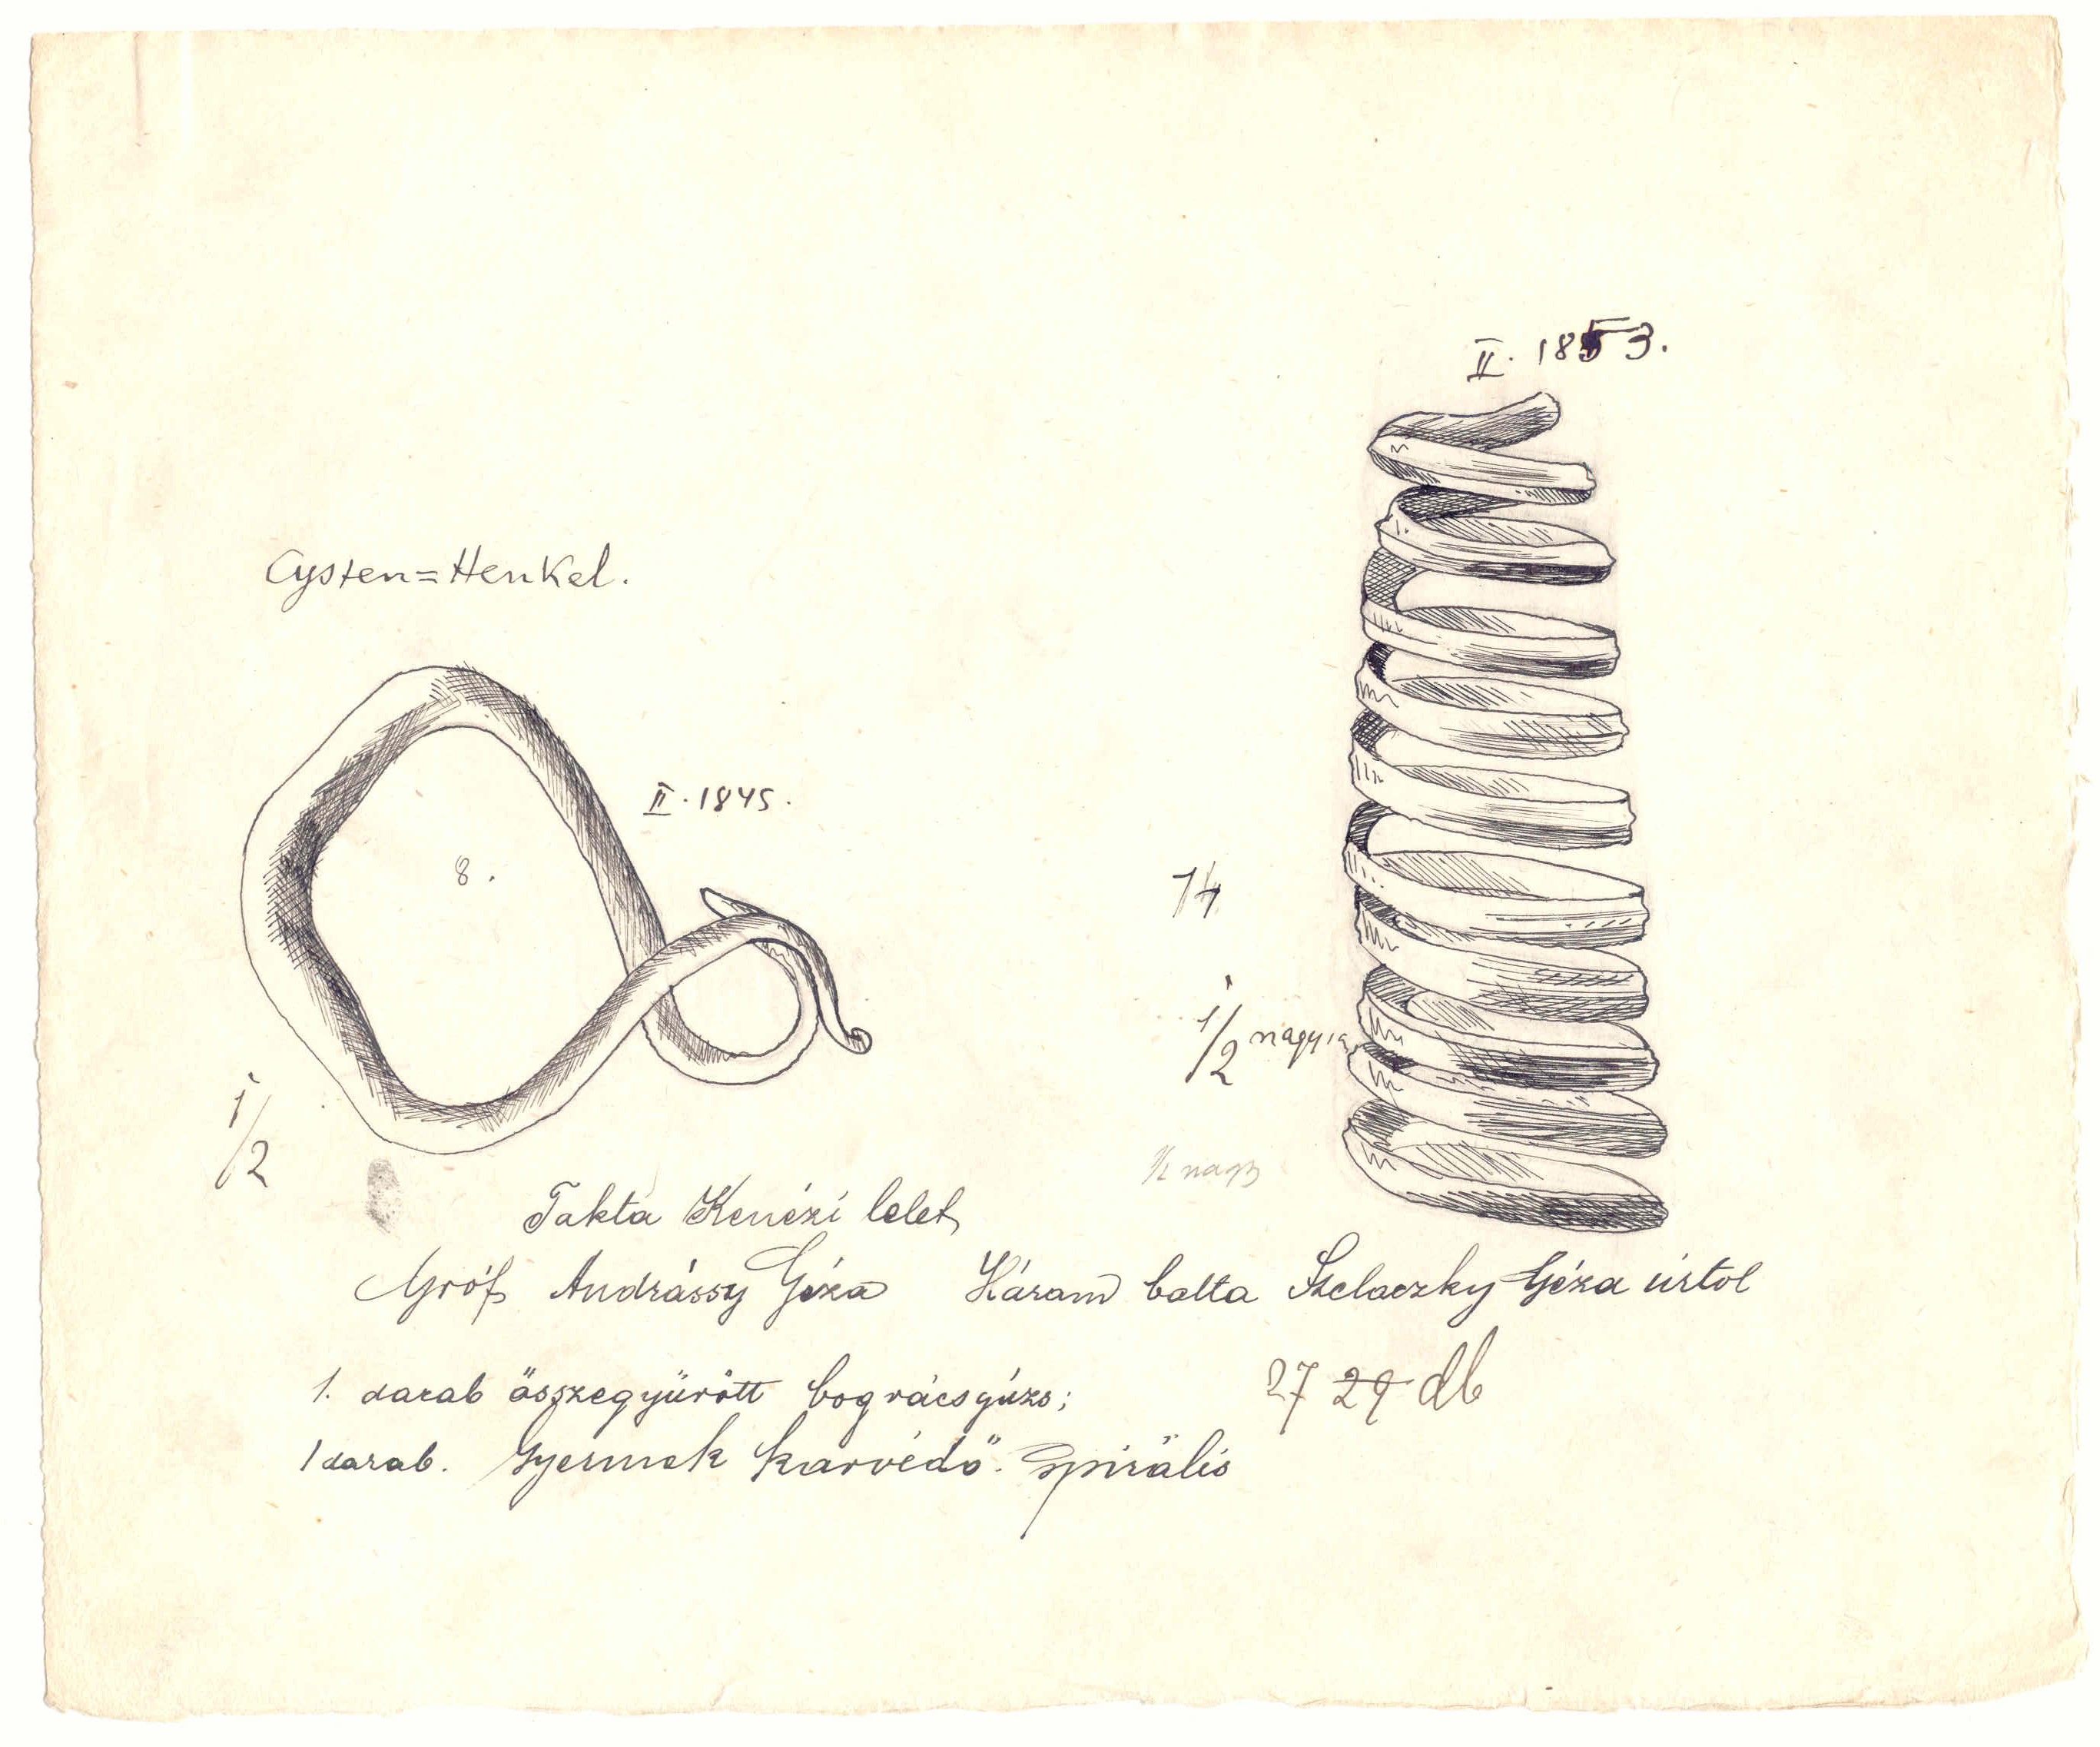 II. 1853.
Cysten=Henkel.
II. 1845.
8.
14
1/2 nagyia
1/2
½ nagy
Takta Kenézi lelet
Gróf Andrássy Géza
Három balta Szelaczky Géza úrtol
1. darab összegyürött bográcsgúzs;
27 29 db
1 darab. Gyermek karvédő. Spirális